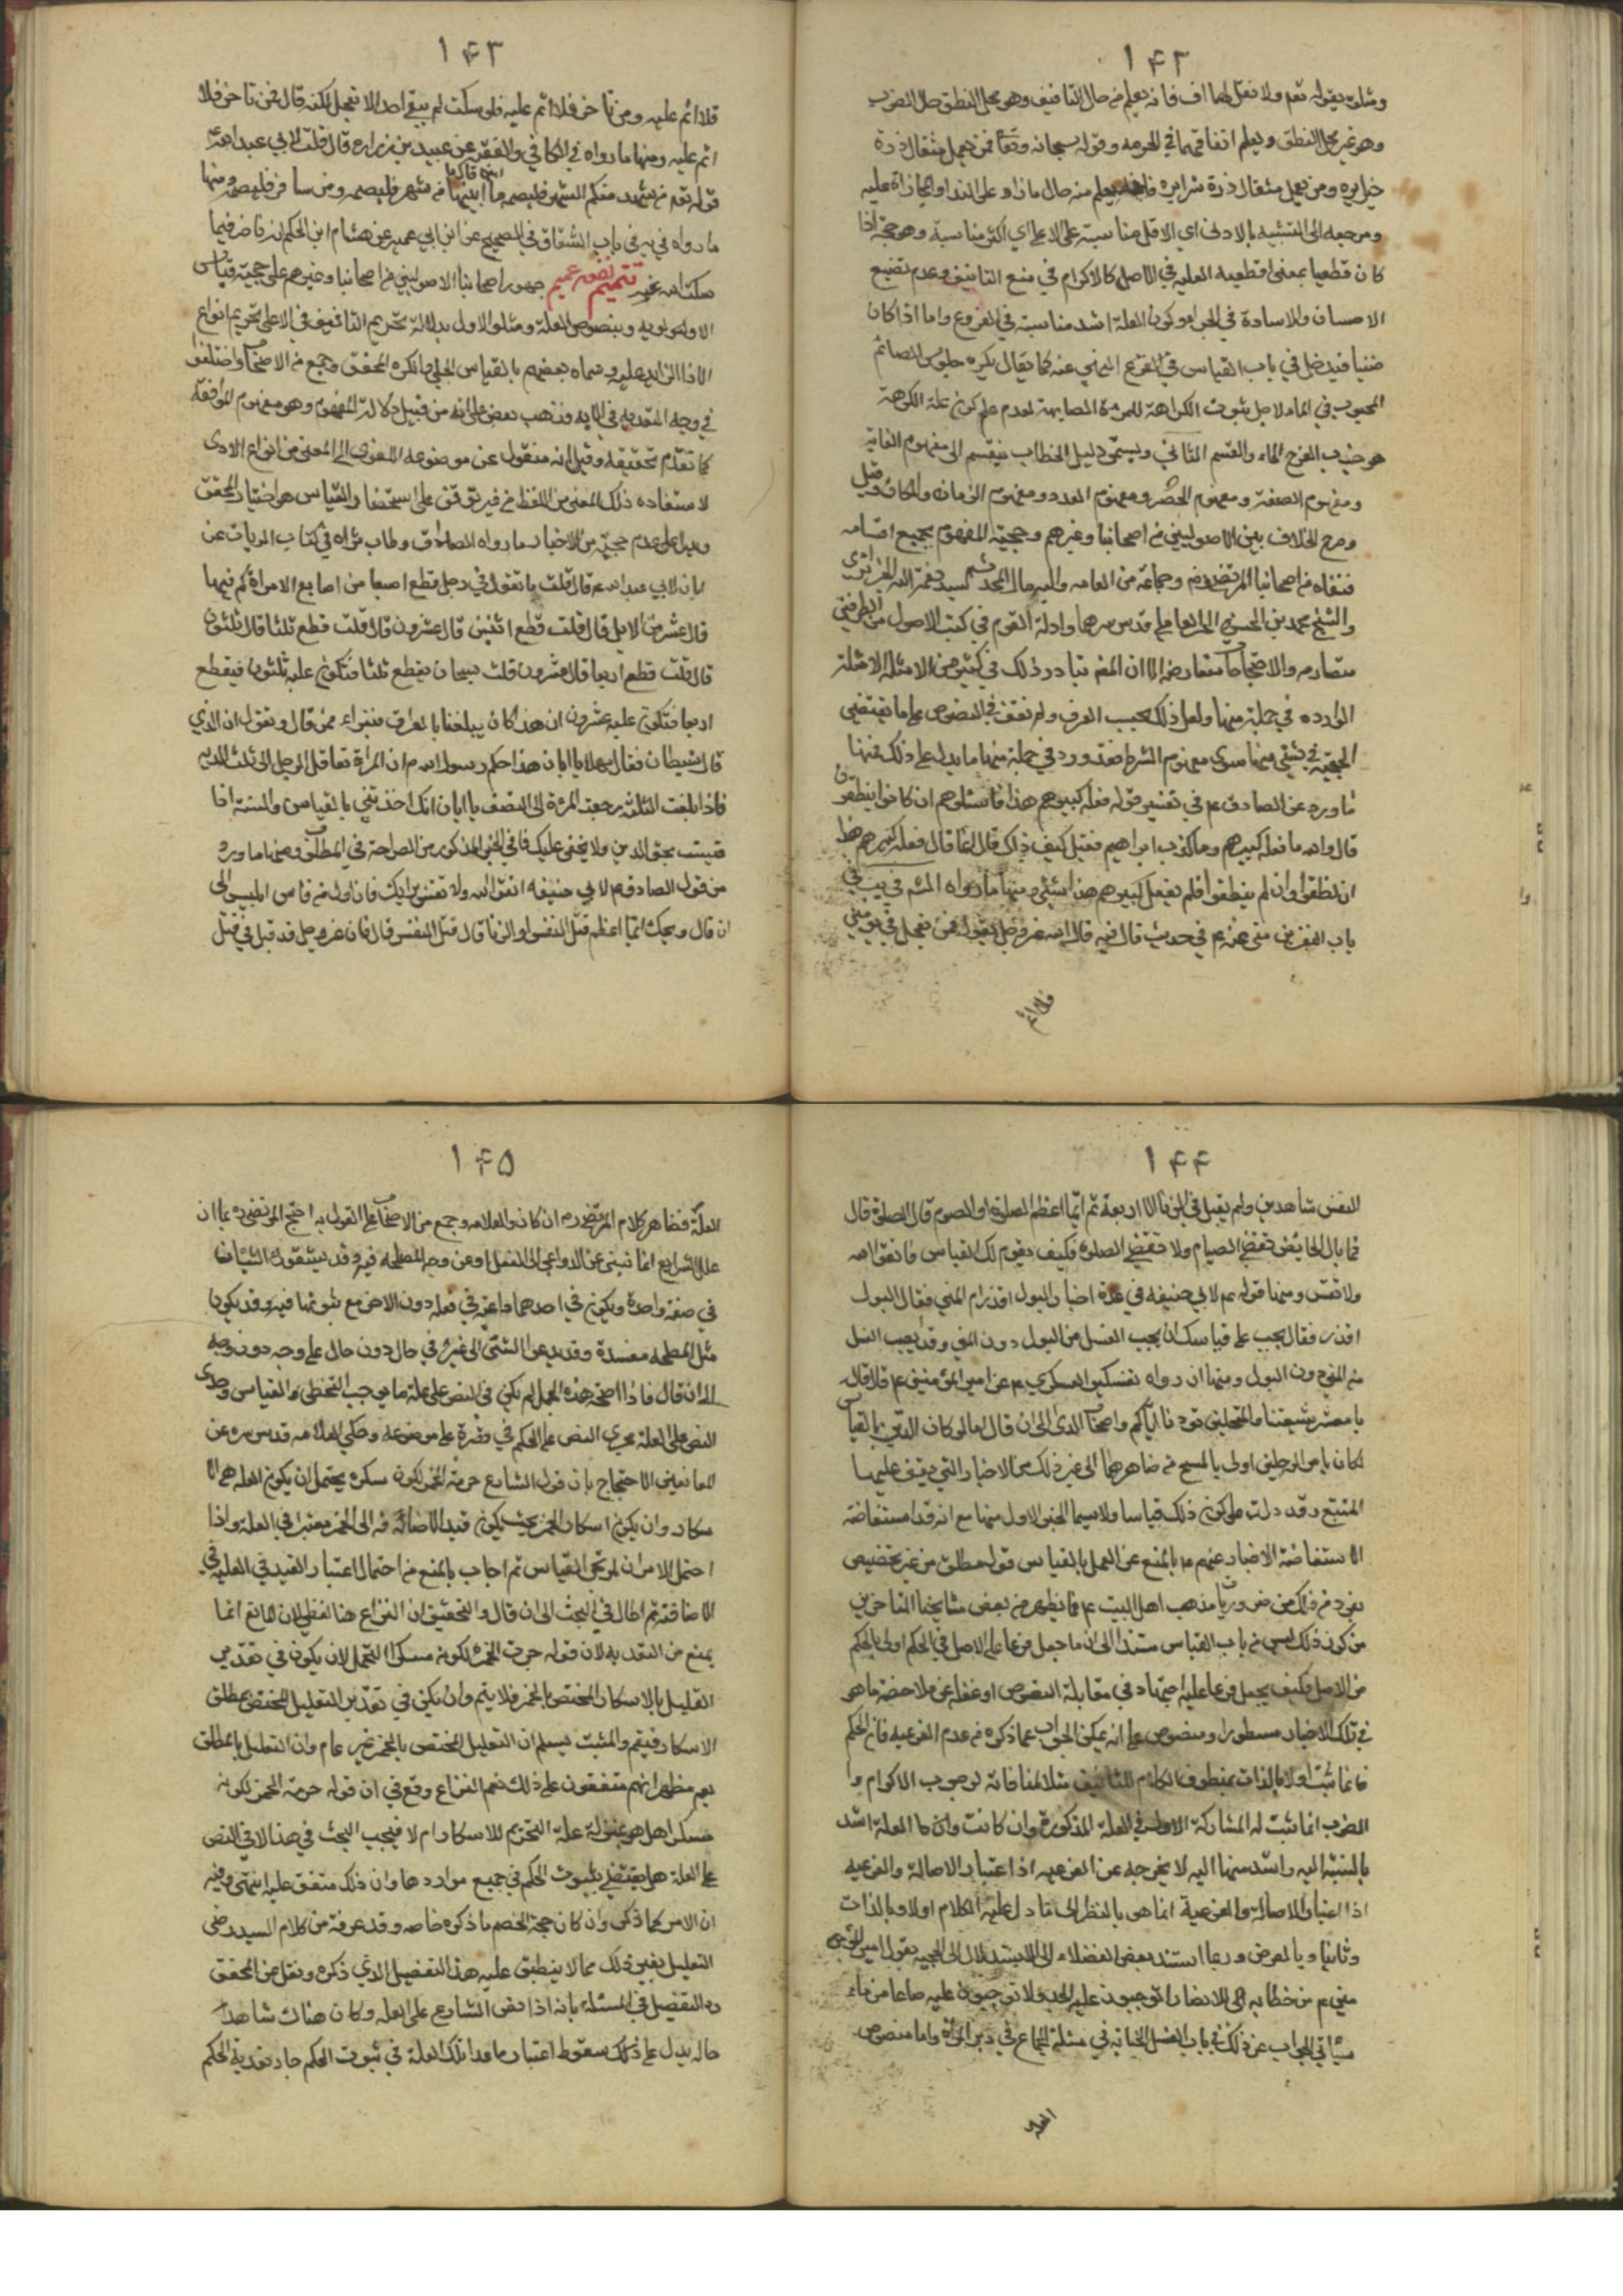 ١٤٢
ومثلوه بقوله تعم ولا تقل لهما اف فانه يعلم من حال التافيف وهو محل النطق حال الضرب
وهو غير محل النطق ويعلم اتفاقهما في الحرمه وقوله سبحانه وتعا فمن يعمل مثقال ذرة
خيرا يره ومن يعمل مثقال ذرة شرا يره فانه يعلم منه حال ما زاد على الذرة والمجازاة عليه
ومرجعه الى التنبيه بالادنى اي الاقل مناسبته على الاعلى اي اكثر مناسبة وهو حجة اذا
كان قطعيا بمعنى قطعيه العليه في الاصل كالاكرام في منع التافيف وعدم تضييع
الاحسان والاساءة في الجزاء وكون العلة اشد مناسبته في الفروع واما اذا كان
ظنيا فيدخل في باب القياس في الفرع المنهي عنه كما يقال يكره جلوس الصائم
المجبوب في الماء لاجل ثبوت الكراهة للمرءة الصايمة لعدم علم كون علة الكرهة
هو جذب الفرج الماء والقسم الثاني ويسمى دليل الخطاب ينقسم الى مفهوم الغاية
ومفهوم الصفة ومفهوم الحصر ومفهوم العدد ومفهوم الزمان والمكان وقيل
وصرح الخلاف بين الاصوليين من اصحابنا وغيرهم وحجية المفهوم بجميع اقسامه
فنفاه من اصحابنا المرتضى ره وجماعة من العامه واليه مال المحدث السيد نعمة الله الجزائري
والشيخ محمد بن الحسن الحر العاملي قدس سرهما وادلة القوم في كتب الاصول من الطرفين
متصادمه والاحتجاجات متعارضه الا ان المفهم تبادر ذلك في كثير من الامثله الامثلة
الوارده في جملة منها ولعل ذلك بحسب العرف ولم نقف في النصوص على ما يقتضي
الحجية في شيء منها سوى مفهوم الشرط فقد ورد في جملة منها ما يدل على ذلك فمنها
ما ورد عن الصادق ع في تفسير قوله فعله كبيرهم هذا فاسئلوهم ان كانوا ينطقون
قال والله ما فعله كبيرهم وما كذب ابراهيم فقيل كيف ذلك قال انما قال فعله كبيرهم هذا
ان نطقوا وان لم ينطقوا فلم يفعل كبيرهم هذا شيئا ومنها ما رواه
باب النفر من منى عنه ع في حديث قال فيه قال الله عز وجل يقول فمن تعجل في يومين
فلا اثم
١٤٣
فلا اثم عليه ومن تاخر فلا اثم عليه فلو سكت لم يبق احد الا تعجل لكنه قال فمن تاخر فلا
اثم عليه ومنها ما رواه في الكافي والفقيه عن عبيد بن زراره قال قلت لابي عبد الله ع
قوله تعم من شهد منكم الشهر فليصمه قال ما ابينها من شهر فليصمه ومن سافر فليصمه ومنها
ما رواه في باب الشقاق في الصحيح عن ابن ابي عمير عن هشام ابن الحكم انه ناضر فيما
سكت الله عنه تتميم نفعه عميم جمهور اصحابنا الاصوليين من اصحابنا وغيرهم على حجية قياس
الاولويه وبنصوص العلة ومثلو الاول بدلالة تحريم التافيف في الاعلى تحريم انواع
الاذا الزايد عليه وسماه بعضهم بالقياس الجلي وانكره المحقق وجمع من الاصحاب واختلفوا
في وجه التعديه في الايه فذهب بعض على انه من قبيل دلالة المفهوم وهو مفهوم الموافقة
كما تقدم تحقيقه وقيل انه منقول عن موضوعه اللغوى الى المعنى من انواع الاذى
لاستفاده ذلك المعنى من اللفظ من غير توقف على استحضار القياس هو اختيار المحقق
ويدل على عدم حجيته من الاخبار ما رواه الصادق وطاب ثراه في كتاب الديات عن
ابان لابي عبد الله ع قال قلت ما تقول في رجل قطع اصبعا من اصابع الامراة كم فيها
قال عشر من الابل قال قلت قطع اثنين قال عشرون قال قلت قطع ثلثا قال ثلثون
قال قلت قطع اربعا قال عشرون قلت سبحان يقطع ثلثا فتكون عليه ثلثون فيقطع
اربعا فتكون عليه عشرون ان هذا كان يبلغنا بالعراق فنبراء ممن قال ونقول ان الذي
قال شيطان فقال مهلا يا ابان هذا حكم رسول الله ص ان المراة تعاقل الرجل الى ثلث الديه
فاذا بلغت الثلث رجعت المرءة الى النصف يا ابان انك اخذتني بالقياس والسنة اذا
قيست محق الدين ولا يخفى عليك فافي الخبر المذكور من الصراحة في المطلوب ومنها ما ورد
من قول الصادق ع لابي حنيفه اتق الله ولا تقس برايك فان اول من قاس ابليس الى
ان قال ويحك ايما اعظم قتل النفس او الزنا قال قتل النفس قال فان عز وجل قد قبل في قتل
١٤٤
النفس شاهدين ولم يقبل في الزنا الا اربعة ثم ايما اعظم الصلوة او الصوم قال الصلوة قال
فما بال الحايض تقضي الصيام ولا تقضي الصلوة فكيف يقوم لك القياس فاتق الله
ولا تقس ومنها قوله ع لابي حنيفه في عدة اخبار البول اقذر ام المني فقال البول
اقذر فقال يجب على قياسك ان يجب الغسل من البول دون المني وقد يجب الغسل
من المني دون البول ومنها ان رواه تفسير العسكري ع عن امير المؤمنين ع قال قال
يا معشر شيعتنا والمنتحلين مودتنا اياكم واصحاب الراى الى ان قال اما لو كان الدين بالقياس
لكان باطن الرجلين اولى بالمسح من ضاهرهما الى غير ذلك من الاخبار التي يقف عليها
المتتبع وقد دلت على كون ذلك قياسا ولا سيما الخبر الاول منها مع انه قد استفاضة
الاستفاضة الاخبار عنهم ع بالمنع عن العمل بالقياس قول مطلق من غير تخصيص
بفرد من ذلك من ضروريات مذهب اهل البيت ع فما يظهر من بعض مشايخنا المتاخرين
من كون ذلك ليس من باب القياس مستندا الى ان ما جعل فرعا على الاصل في الحكم اولى بالحكم
من الاصل فكيف يجعل فرعا عليه اجتهاد في مقابلة النصوص او غفله عن ملاحضة ما هو
في تلك الاخبار مسطورا ومنصوص على انه يمكن الجواب عما ذكره من عدم الفرعيه فان الحكم
فانما ثبت اولا بالذات بمنطوق الكلام للتافيف مثلا لمنافاته لوجوب الاكرام وا
الضرب انما ثبت له المشاركة الاولى في العلة المذكورة وان كانت وان ما العلة اشد
بالنسبة اليه واشد منها اليه لا يخرجه عن الفرعيه اذا اعتبار الاصالة والفرعيه
اذا اعتبار الاصالة والفرعية انما هى بالنظر الى ما دل عليه الكلام اولا وبالذات
وثانيا وبالعرض وربما استند بعض الفضلاء الى الاستدلال الى الحجيه بقول امير المؤ
منين ع من خطابه الى الانصار اتوجبون عليه الحد ولا توجبون عليه صاعا من ماء
سياتي الجواب عن ذلك في باب الغسل الجنابه في مسئلة الجماع في دبر المراة واما منصوص
العلة
١٤٥
العلة فضاهر كلام المرتضى ره ان كان والعلامه وجمع من الاصحاب على القول به احتج المرتضى ره بما ان
علل الشرايع انما تنبئ عن الدواعي الى الفعل او عن وجه المصلحه فيه وقد يشتركان الشيئان
في صفة واحدة ويكون في احدهما داعية في فعله دون الاخر مع ثبوتها فيه وقد يكون
مثل المصلحه مفسدة وقد يدعو الشئ الى غيره في حال دون حال على وجه دون وجه
الى ان قال فاذا صحت هذه الجمل لم يكن في النص على علة ما يوجب التخطى والقياس وجرى
النص على العلة مجرى النص على الحكم في قصره على موضوعه وحكى العلامه قدس سره عن
المانعين الاحتجاج بان قول الشارع حرمة الخمر لكون سكره يحتمل ان يكون العله هي الا
سكار وان يكون اسكار الخمر بحيث يكون قيد الاضافة الى الخمر معتبرا في العله واذا
احتمل الامران لم يجز القياس ثم اجاب بالمنع من احتمال اعتبار القيد في العلة في
الاضافة ثم اطال في البحث الى ان قال والتحقيق ان النزاع هنا لفظي لان المانع انما
يمنع من التعديه لان قوله حرمة الخمر لكونه مسكرا للتحمل لان يكون في تقدير
التعليل بالاسكار المختص بالخمر فلا يتم وان يكون في تقدير التعليل المختص بمطلق
الاسكار فيتم والمثبت يسلم ان التعليل المختص بالخمر غير عام وان التعليل بالمطلق
يعم فظهر انهم متفقون على ذلك نعم النزاع وقع في ان قوله حرمة الخمر لكونه
مسكرا هل هو بمنزلة علة التحريم للاسكار ام لا فيجب البحث في هذا لا في النص
على العلة هل يقتضي بثبوت الحكم في جميع مواردها وان ذلك متفق عليه انتهى وفيه
ان الامر كما ذكر وان كان حجة الخصم ما ذكره خاصه وقد عرفة من كلام السيد رضى
التعليل بغير ذلك مما لا ينطبق عليه هذا التفصيل الذي ذكره ونقل عن المحقق
ره التفصيل في المسئلة بانه اذا نص الشارع على العله وكان هناك شاهدا
حاله يدل على ذلك سقوط اعتبار ما عدا تلك العلة في ثبوت الحكم جاز تعدية الحكم